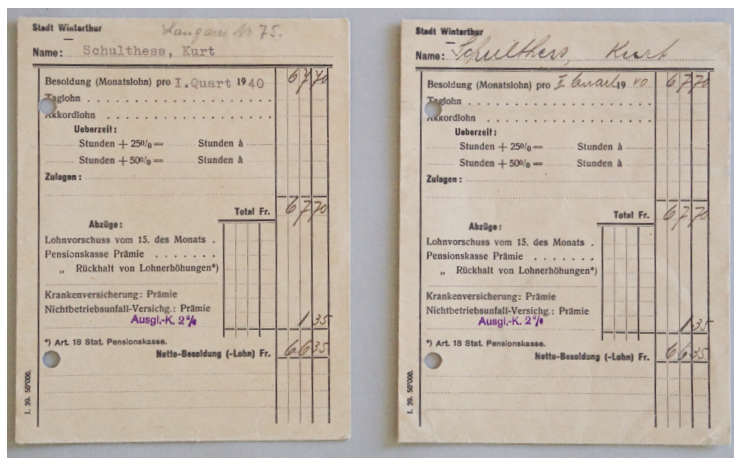 Stadt Winterthur
Langgasse Nr 75.
Name: Schulthess, Kurt
Besoldung (Monatslohn) pro I.Quart 1940 67 70
Taglohn
Akkordlohn
Ueberzeit:
Stunden + 25% = Stunden à
Stunden + 50% = Stunden à
Zulagen:
Total Fr. 67 70
Abzüge:
Lohnvorschuss vom 15. des Monats
Pensionskasse Prämie
„ Rückhalt von Lohnerhöhungen*)
Krankenversicherung: Prämie
Nichtbetriebsunfall-Versichg.: Prämie
Ausgl.-K. 2% 1 35
*) Art. 18 Stat. Pensionskasse.
Netto-Besoldung (-Lohn) Fr. 66 35
I. 39. 50'000.
Stadt Winterthur
Name: Schulthess, Kurt
Besoldung (Monatslohn) pro I Quart. 1940 67 70
Taglohn
Akkordlohn
Ueberzeit:
Stunden + 25% = Stunden à
Stunden + 50% = Stunden à
Zulagen:
Total Fr. 67 70
Abzüge:
Lohnvorschuss vom 15. des Monats
Pensionskasse Prämie
„ Rückhalt von Lohnerhöhungen*)
Krankenversicherung: Prämie
Nichtbetriebsunfall-Versichg.: Prämie
Ausgl.-K. 2% 1 35
*) Art. 18 Stat. Pensionskasse.
Netto-Besoldung (-Lohn) Fr. 66 35
I. 39. 50'000.